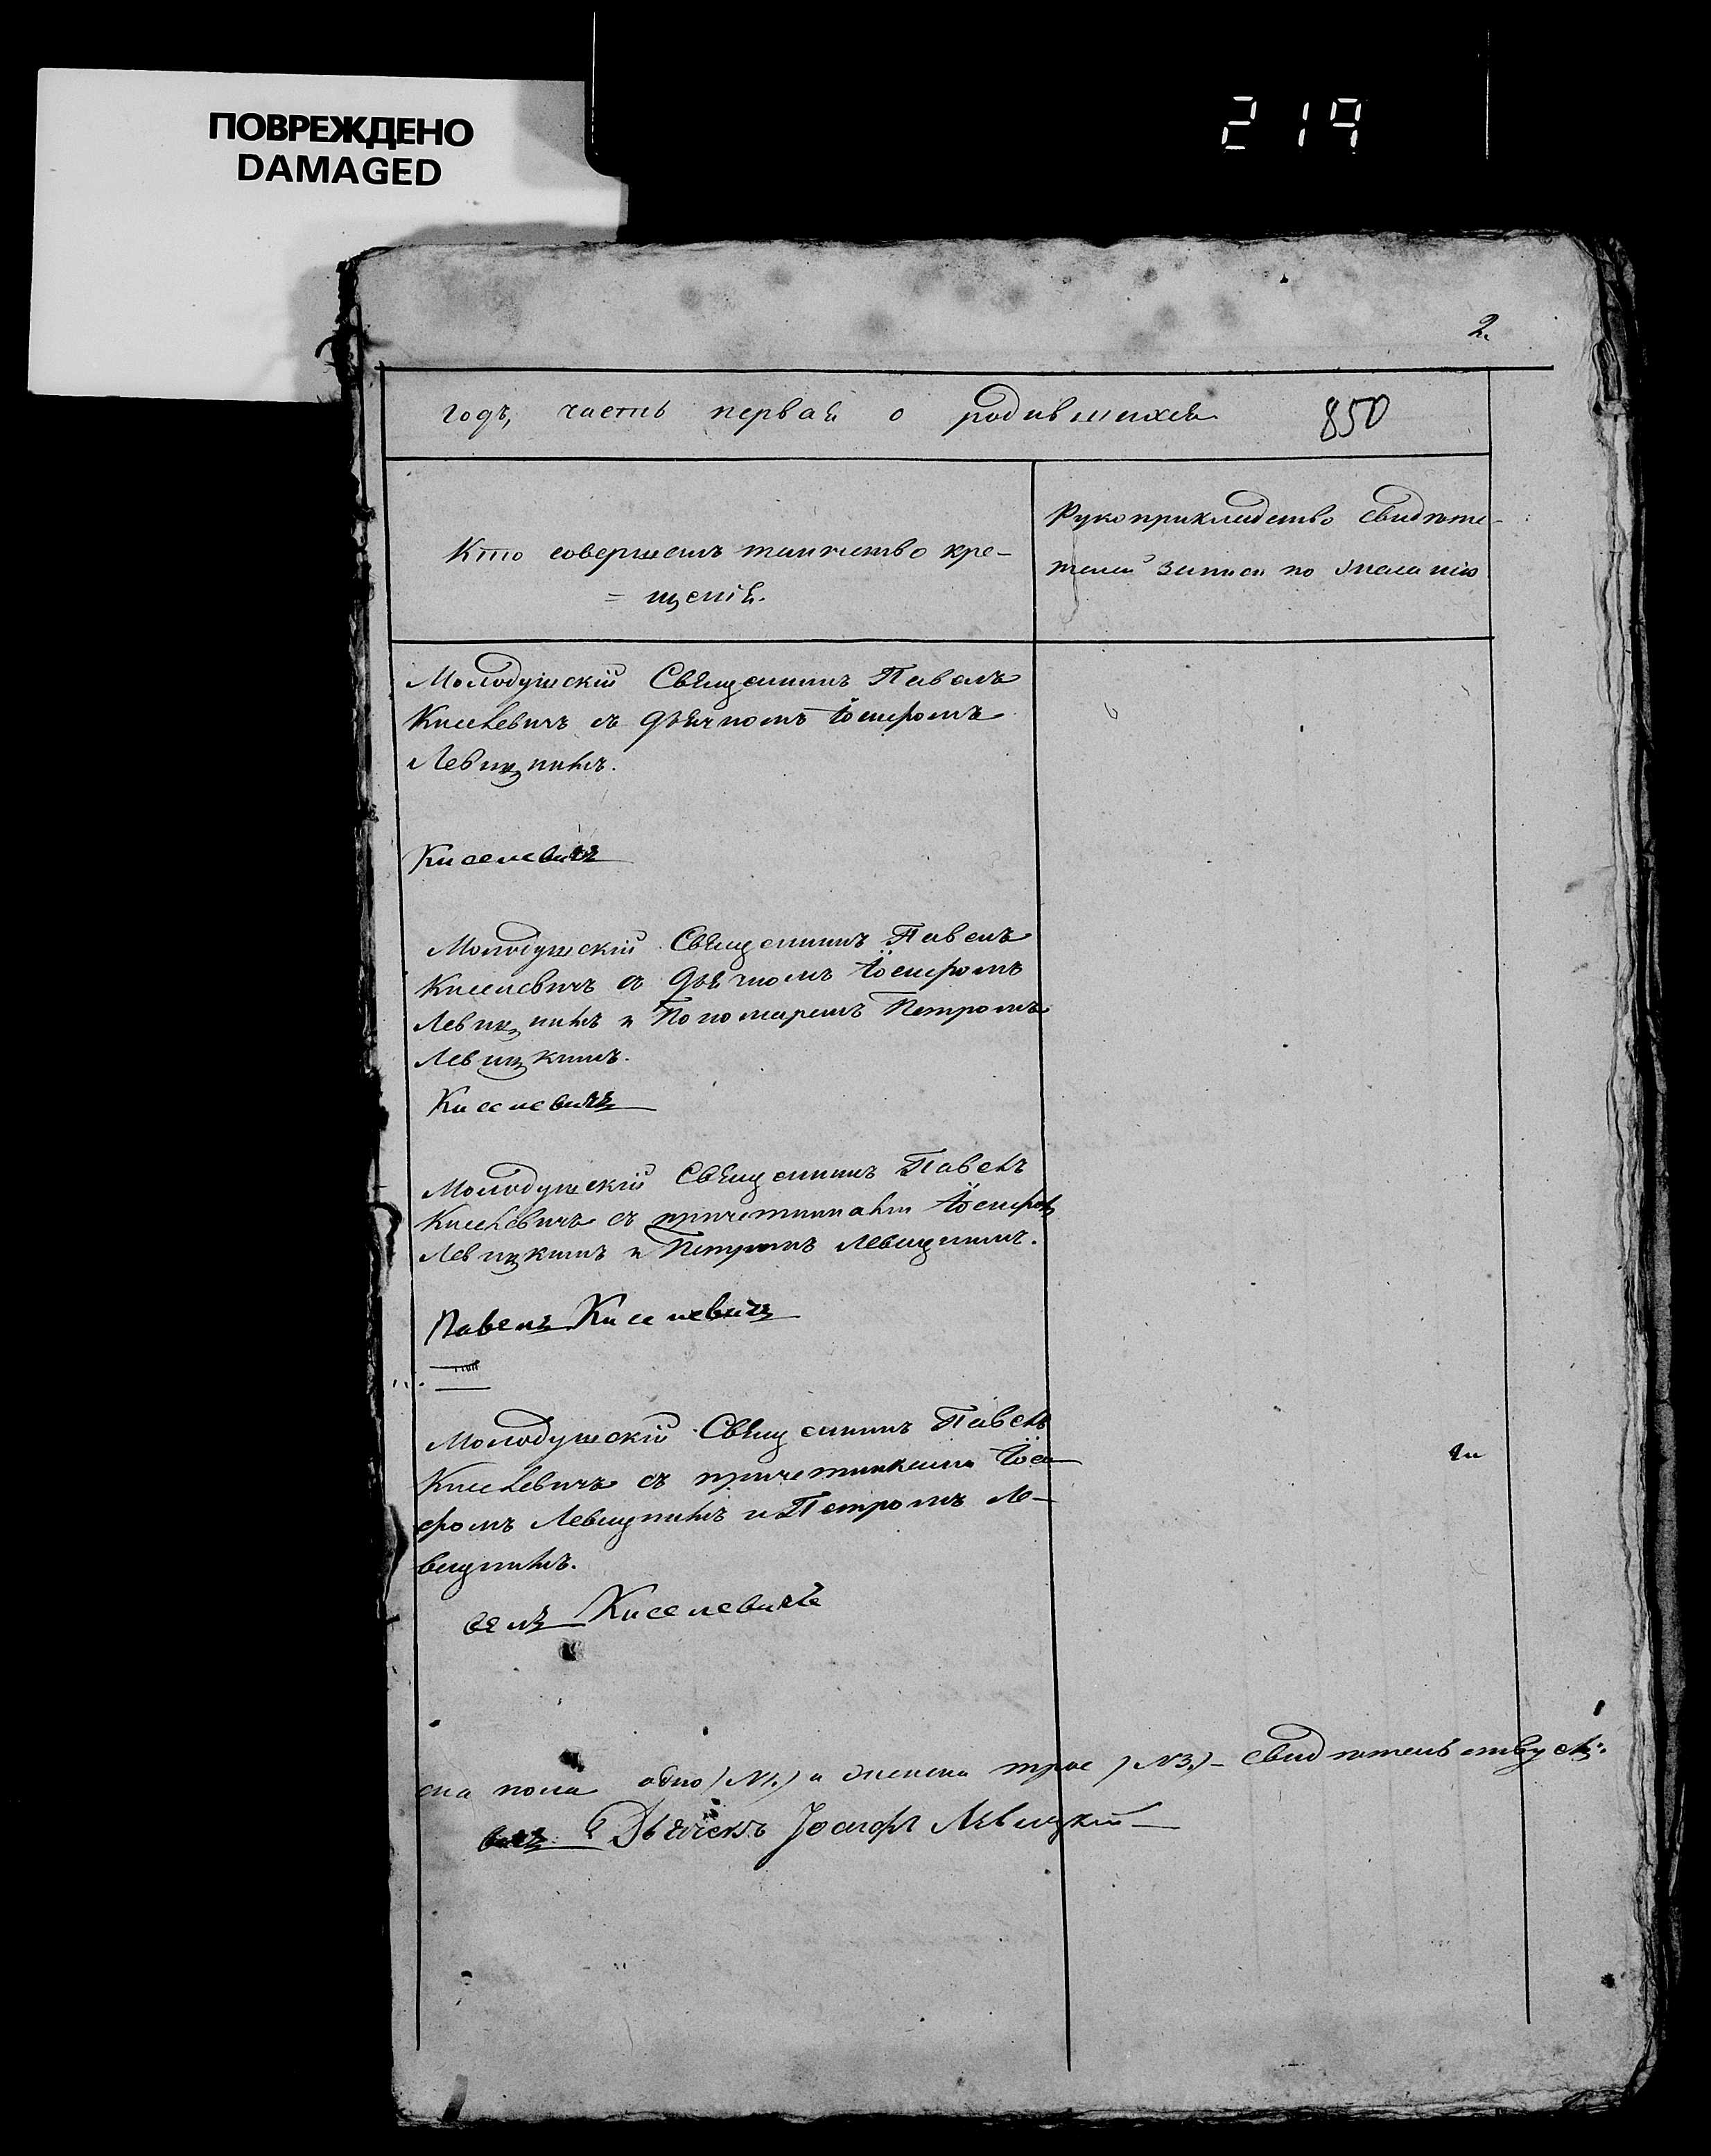 ПОВРЕЖДЕНО
DAMAGED
219
2.
годъ, часть первая о родившихся 850
Кто совершалъ таинство кре-
= щенія.
Рукоприкладство свидѣте-
телей записи по желанію
Молодушскій Священникъ Павелъ
Киселевичъ съ дьячкомъ Іосифомъ
Левицкимъ.
Киселевичъ
Молодушскій Священникъ Павелъ
Киселевичъ съ дьячкомъ Іосифомъ
Левицкимъ и Пономаремъ Петромъ
Левицкимъ.
Киселевичъ
Молодушскій Священникъ Павелъ
Киселевичъ съ причетниками Іосифом
Левицкимъ и Петромъ Левицкимъ.
Павелъ Киселевичъ
Молодушскій Священникъ Павелъ
Киселевичъ съ причетниками Іоси-
фомъ Левицкимъ и Петромъ Ле-
вицкимъ.
велъ Киселевичъ
ска пола одно (№1.) а женска трое (№3.) - свидѣтельствуемъ:
вичъ Дьячекъ Іосифъ Левицкій